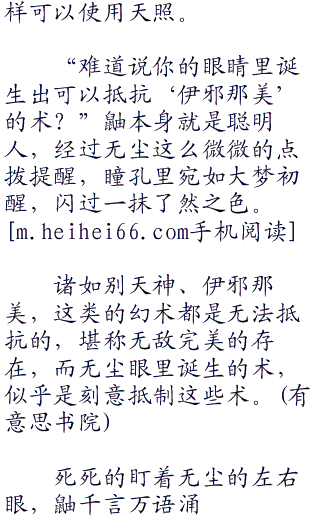 样可以使用天照。
“难道说你的眼睛里诞
生出可以抵抗‘伊邪那美’
的术？”鼬本身就是聪明
人，经过无尘这么微微的点
拨提醒，瞳孔里宛如大梦初
醒，闪过一抹了然之色。
[m.heihei66.com手机阅读]
诸如别天神、伊邪那
美，这类的幻术都是无法抵
抗的，堪称无敌完美的存
在，而无尘眼里诞生的术，
似乎是刻意抵制这些术。(有
意思书院)
死死的盯着无尘的左右
眼，鼬千言万语涌